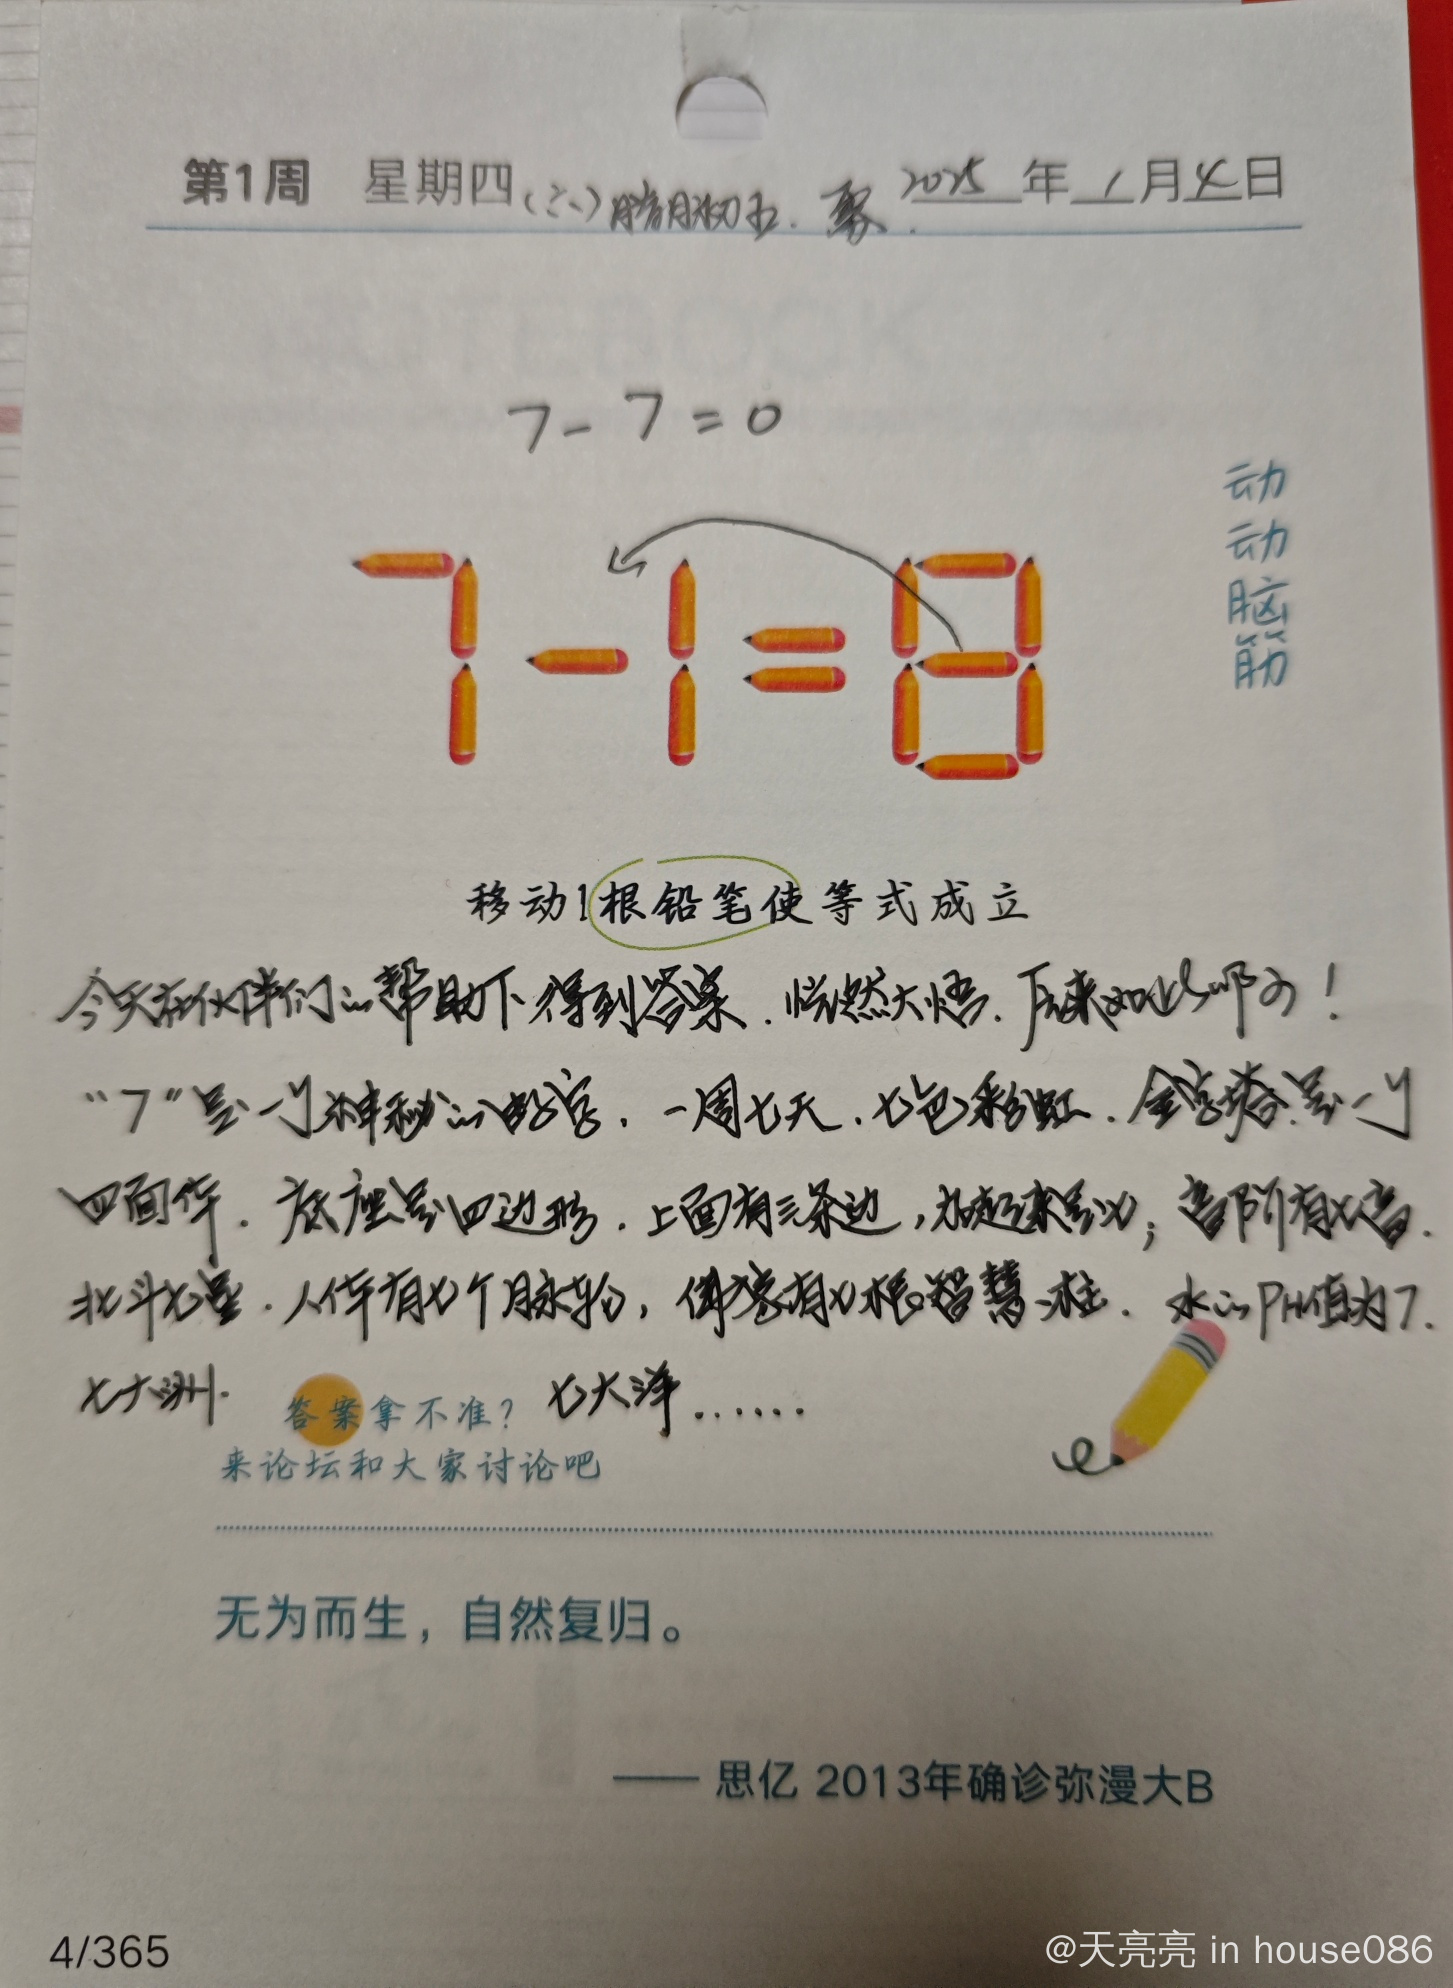 第1周 星期四(六)腊月初五. 聚. 2025年1月4日
7-7=0
动动脑筋
7-1=8
移动1根铅笔使等式成立
今天在伙伴们的帮助下得到答案.恍然大悟.原来如此的！
"7"是一个神秘的数字.一周七天.七色彩虹.金字塔是一个
四面体.底座是四边形.上面有三条边,加起来是七;音阶有七音.
北斗七星.人体有七个脉轮,佛塔有七根智慧柱.水的PH值为7.
七大洲. 七大洋......
答案拿不准？
来论坛和大家讨论吧
无为而生，自然复归。
—— 思亿 2013年确诊弥漫大B
4/365
@天亮亮 in house086